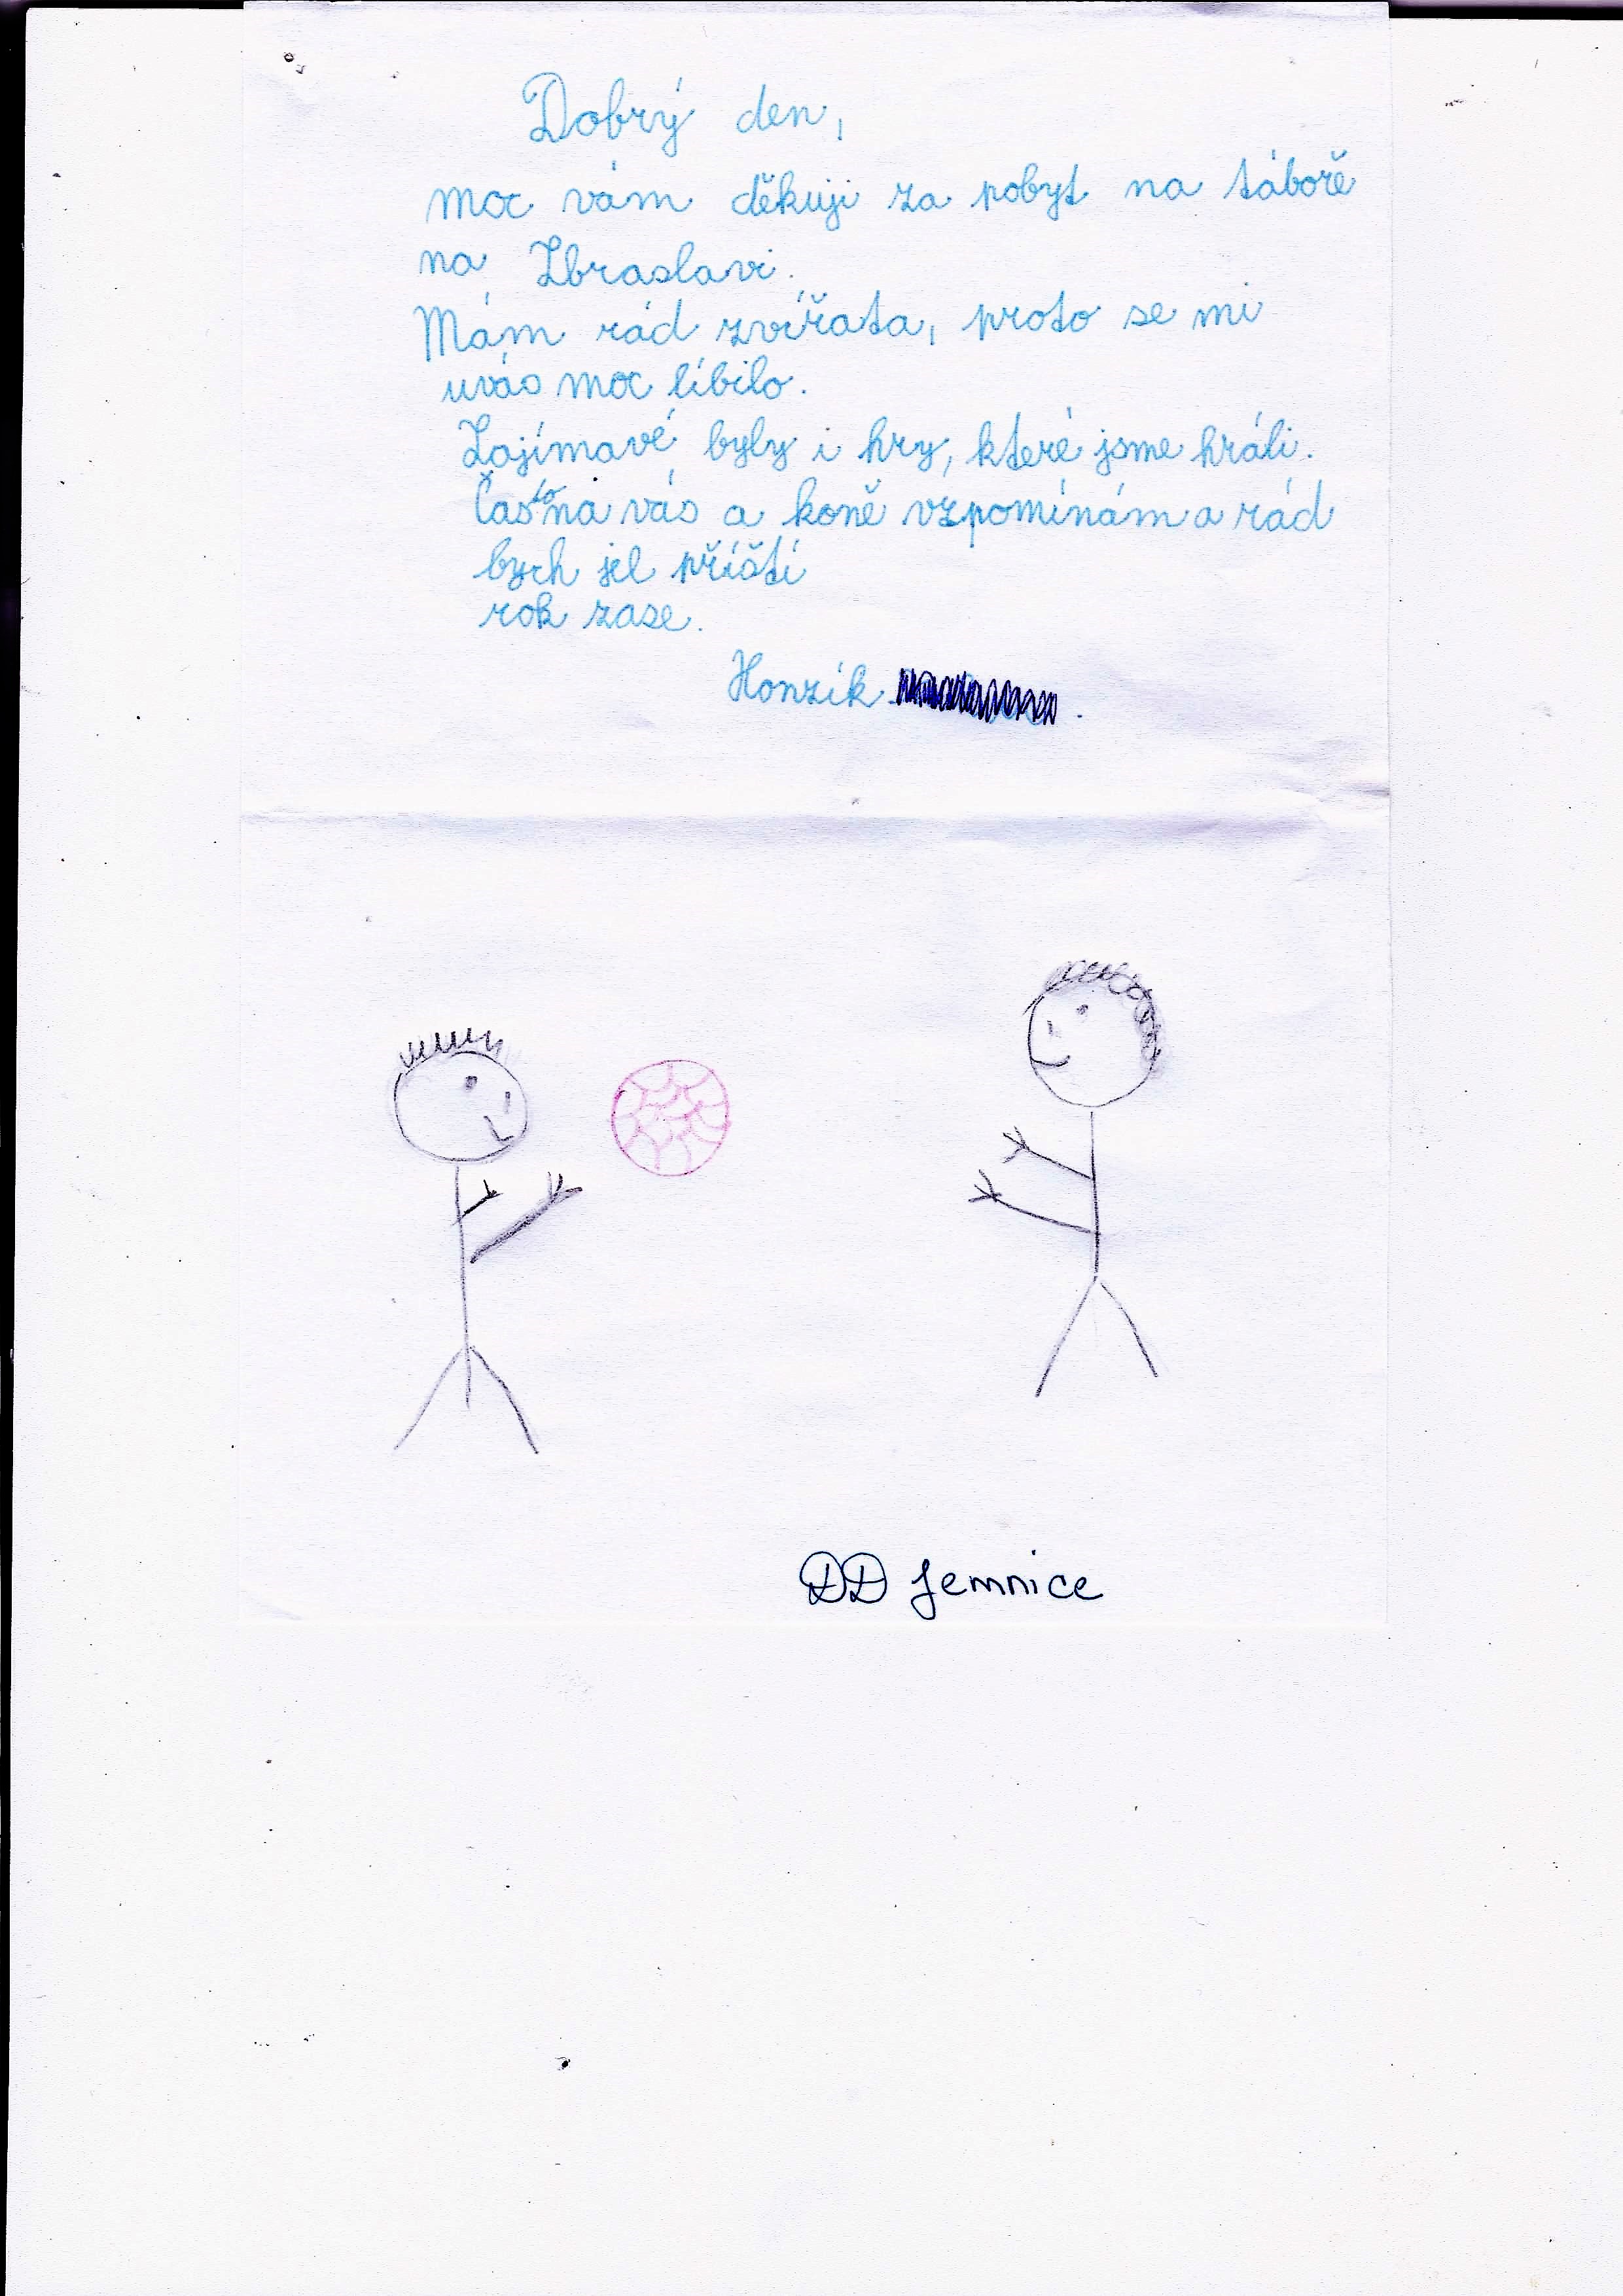 Dobrý den,
moc vám děkuji za pobyt na táboře
na Zbraslavi.
Mám rád zvířata, proto se mi
uvás moc líbilo.
Zajímavé byly i hry, které jsme hráli.
Často na vás a koně vzpomínám a rád
bych jel příští
rok zase.
Honzík .
DD Jemnice